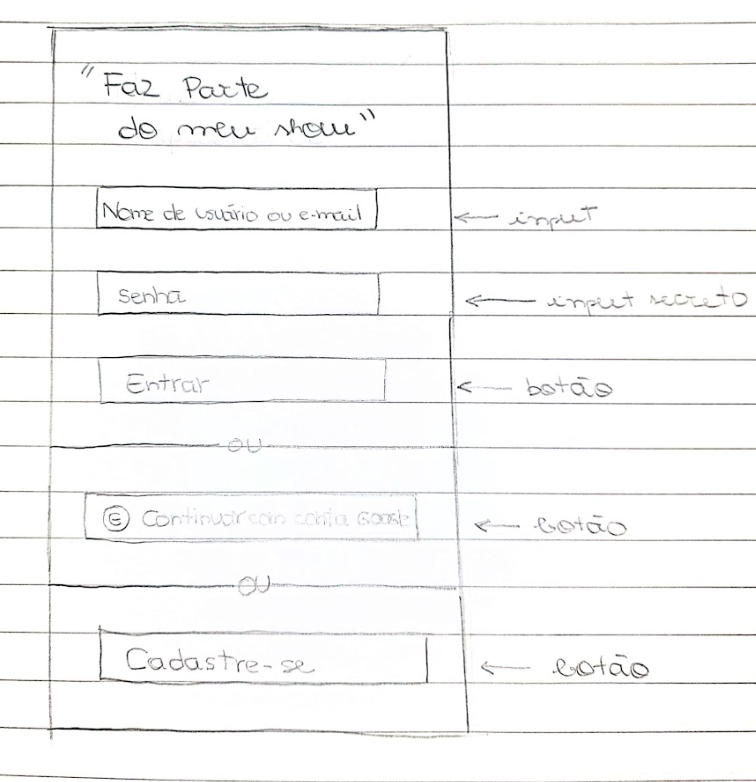 "Faz Parte
do meu show"
Nome de usuário ou e-mail
← input
senha
← input secreto
Entrar
← botão
OU
G Continuar com conta Google
← botão
OU
Cadastre-se
← botão